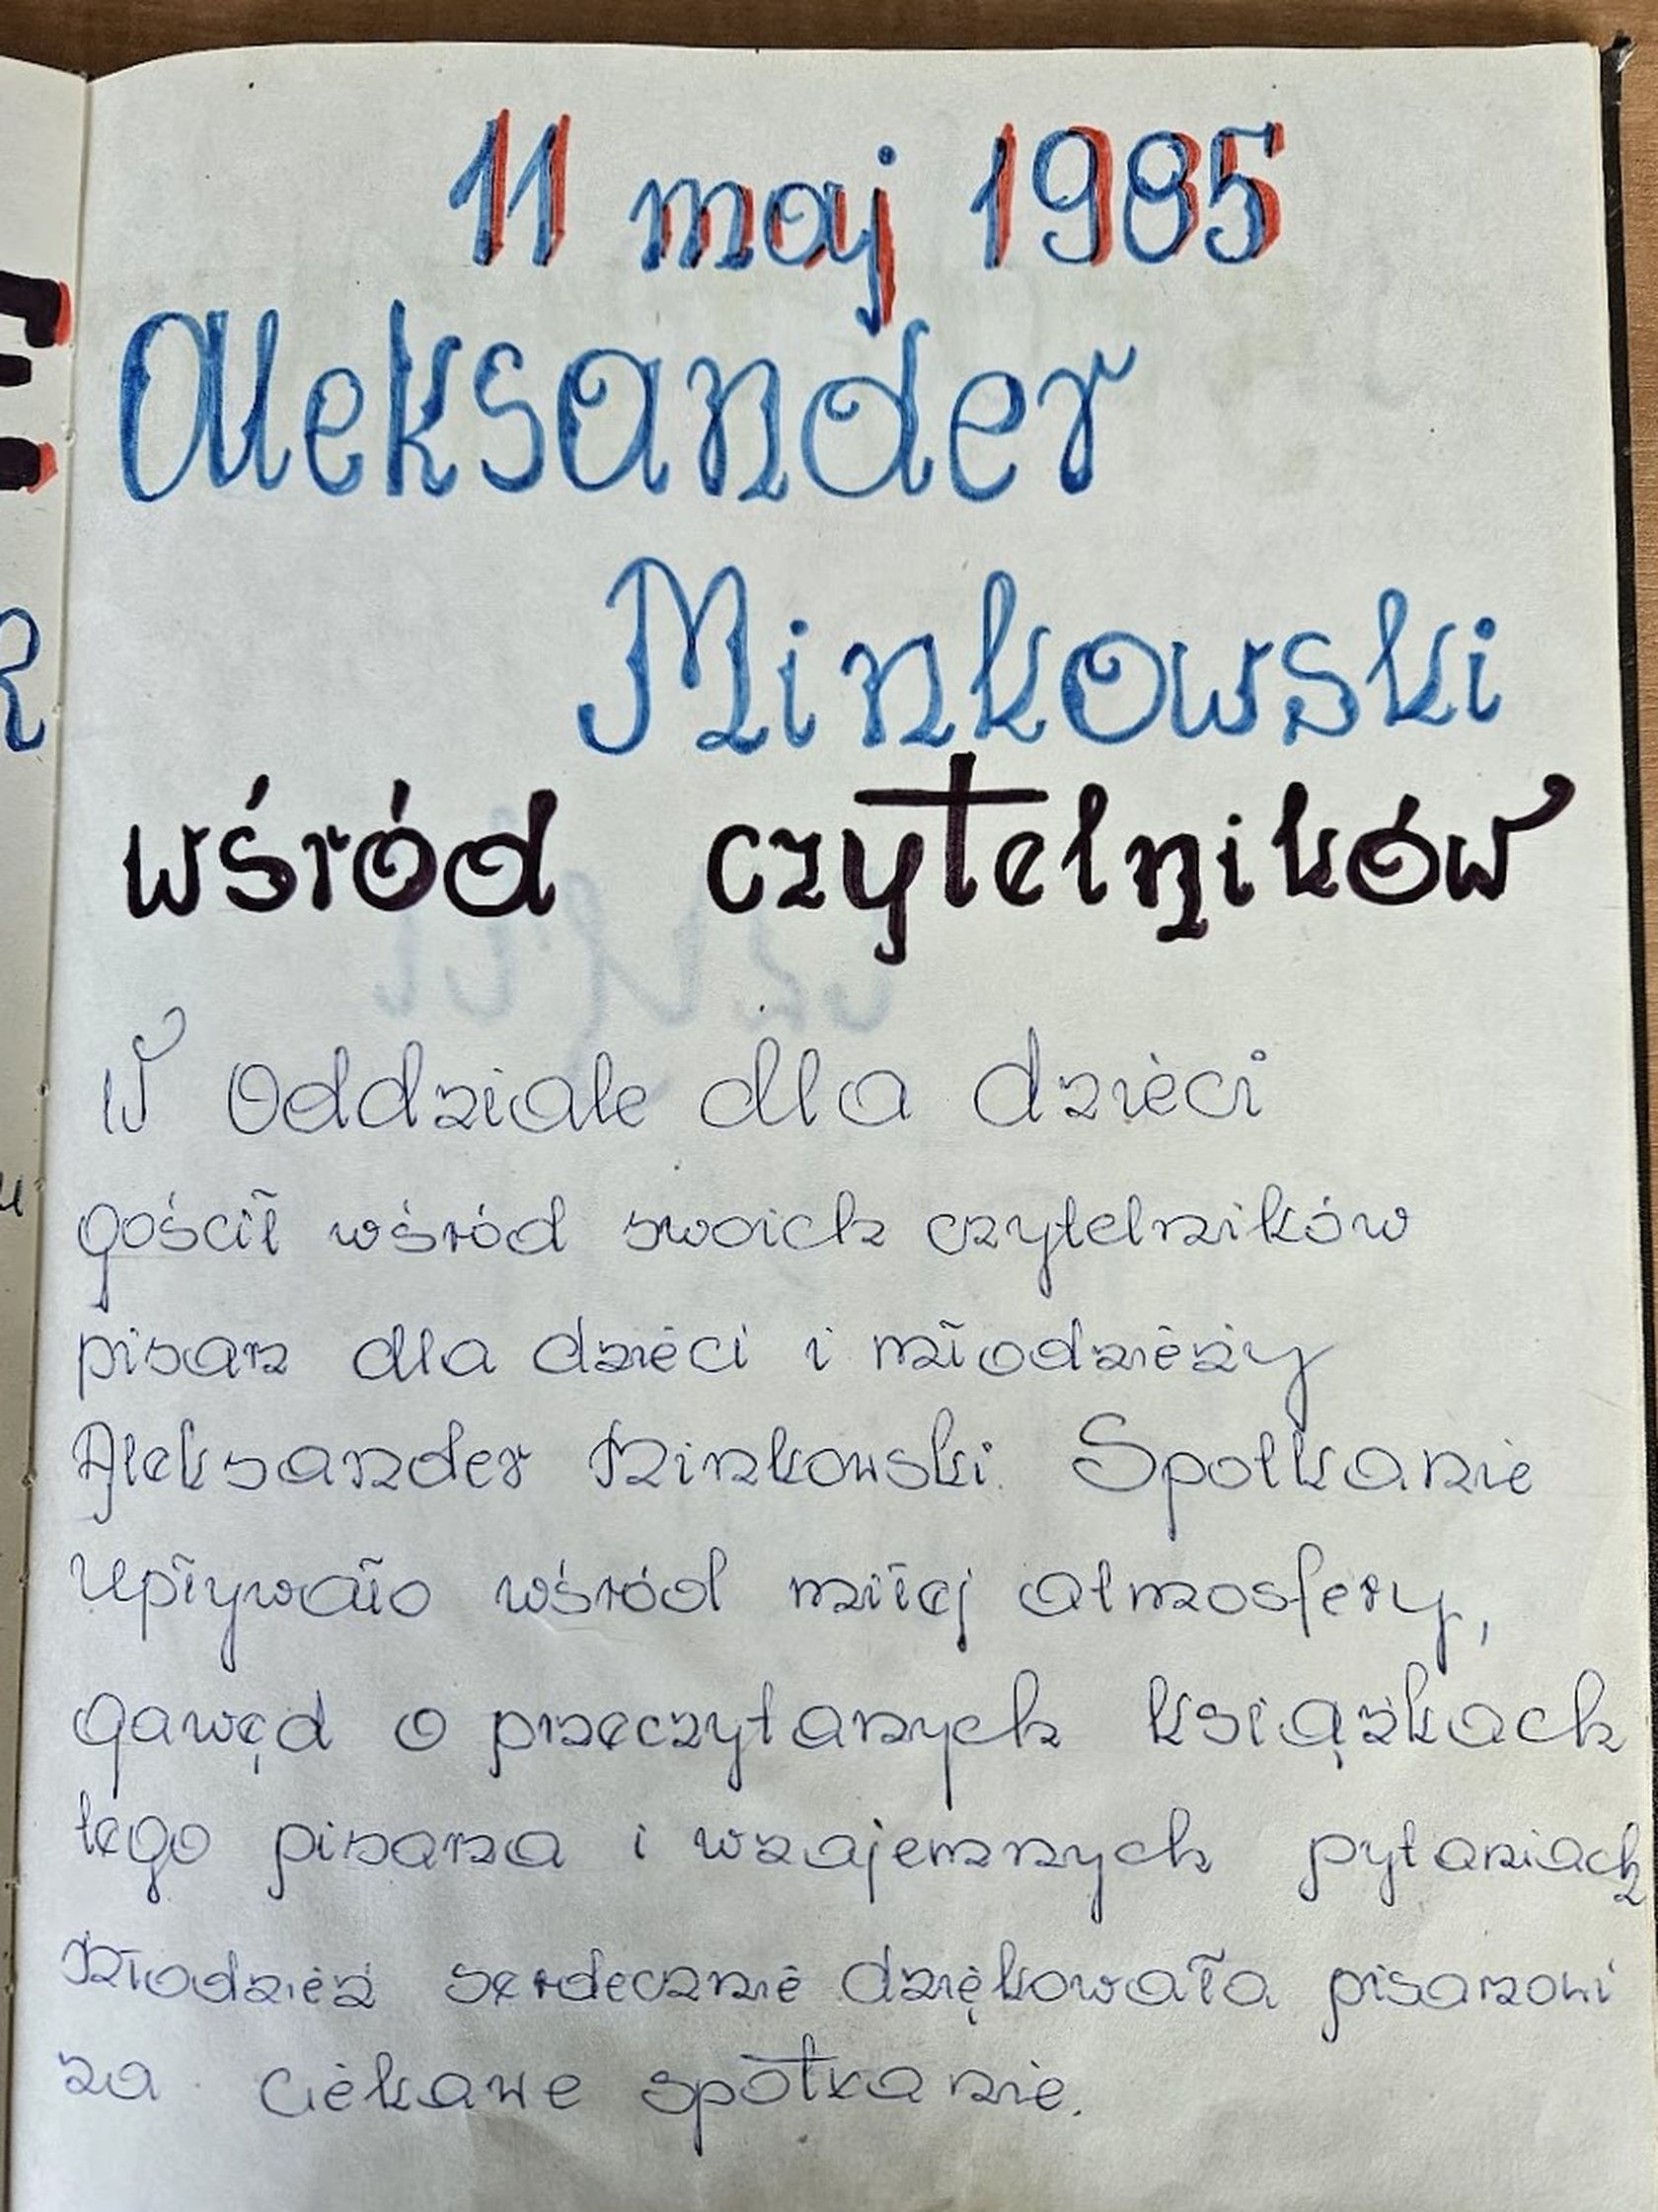 11 maj 1985
Aleksander
Minkowski
wśród czytelników
W Oddziale dla dzieci
gościł wśród swoich czytelników
pisarz dla dzieci i młodzieży
Aleksander Minkowski. Spotkanie
upływało wśród miłej atmosfery,
gawęd o przeczytanych książkach
tego pisarza i wzajemnych pytaniach
Młodzież serdecznie dziękowała pisarzowi
za ciekawe spotkanie.